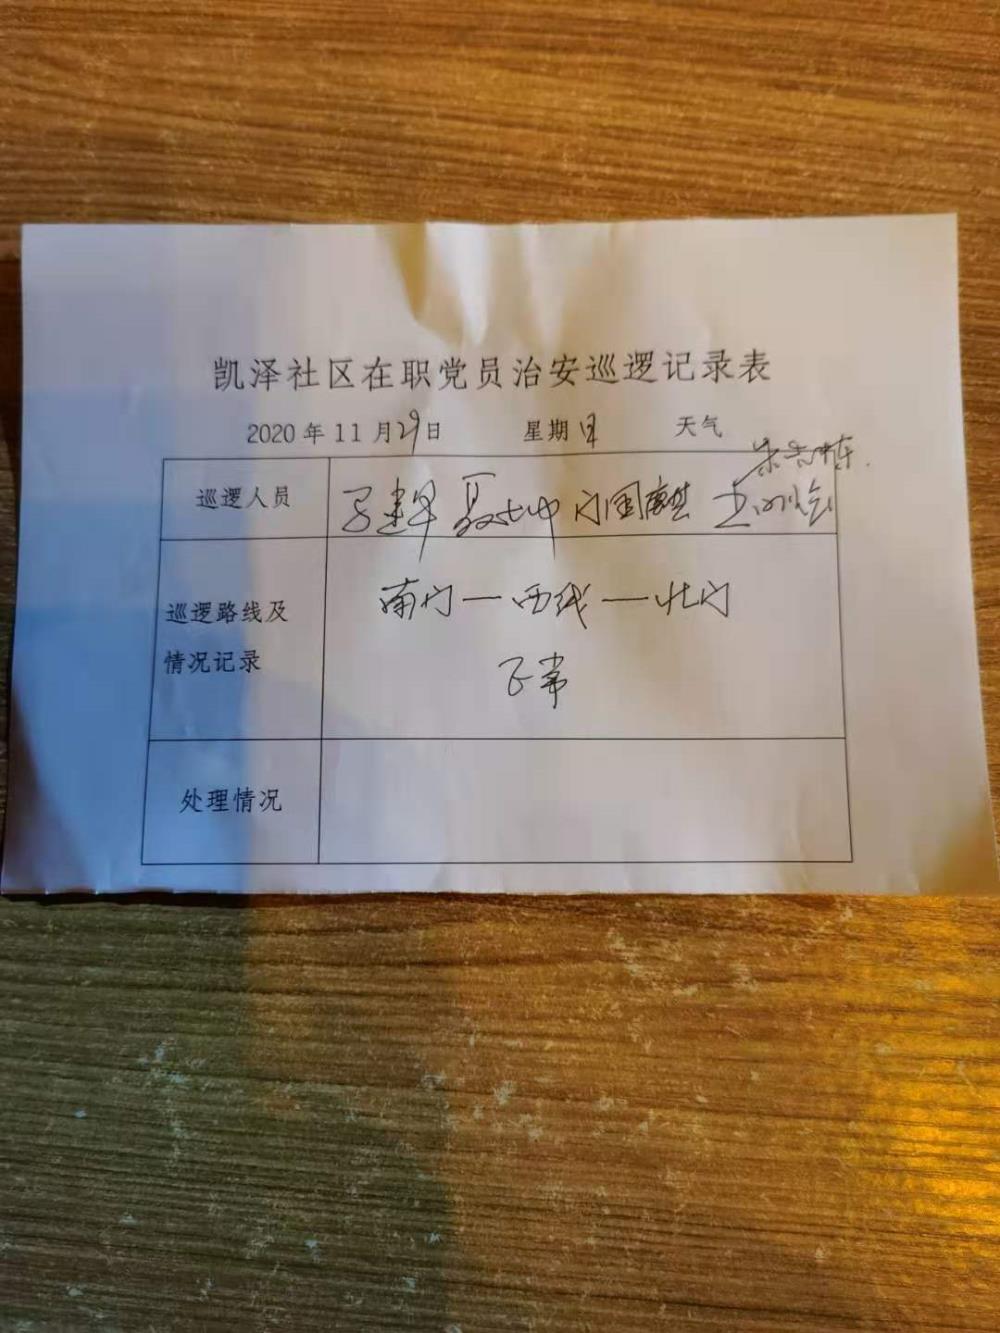 凯泽社区在职党员治安巡逻记录表
2020年11月29日 星期日 天气
巡逻人员
巡逻路线及
情况记录
南门—西线—北门
正常
处理情况